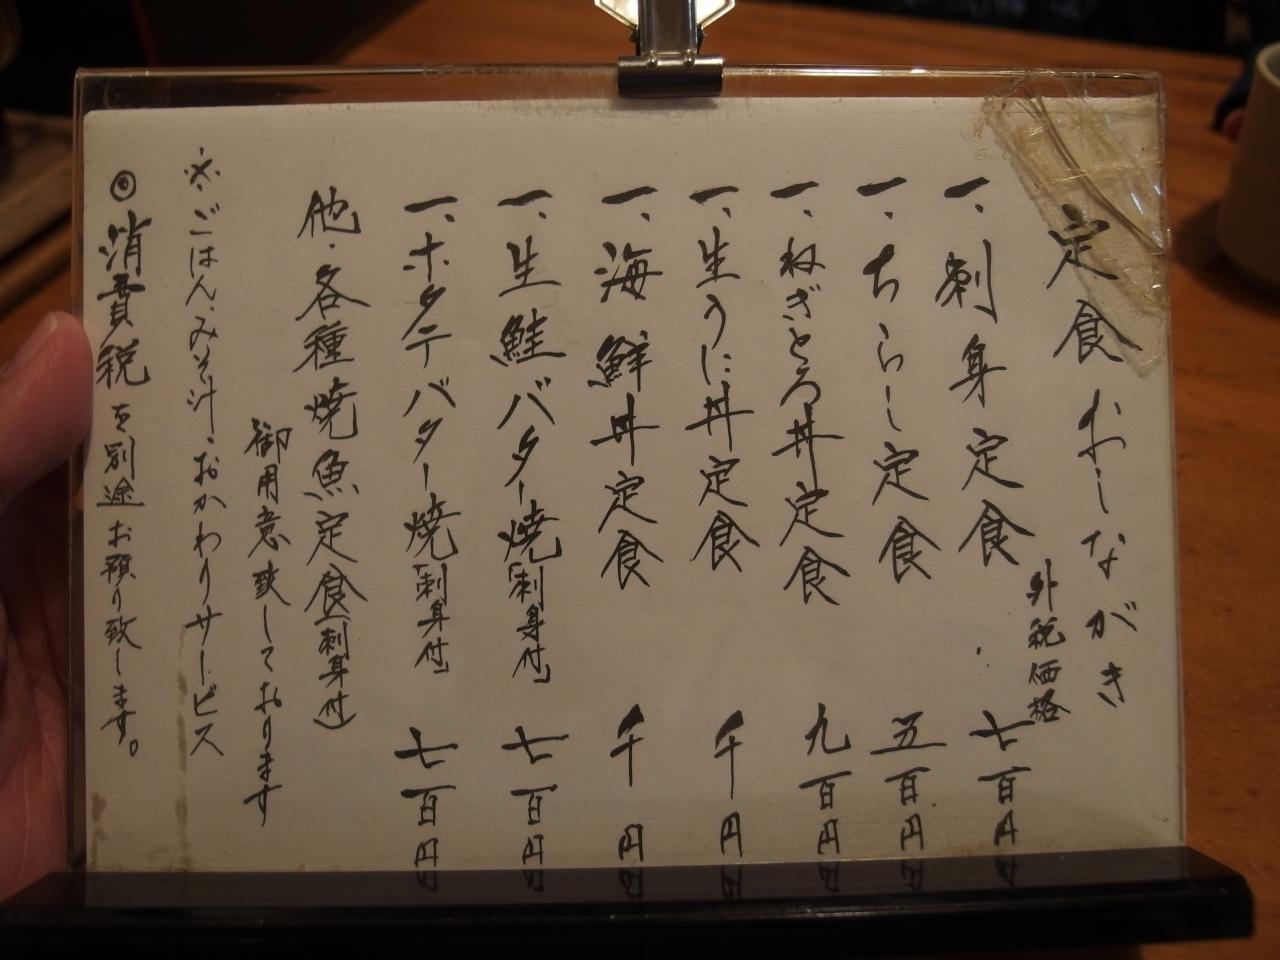 定食おしながき
外税価格
一、刺身定食 七百円
一、ちらし定食 五百円
一、ねぎとろ丼定食 九百円
一、生うに丼定食 千円
一、海鮮丼定食 千円
一、生鮭バター焼「刺身付」 七百円
一、ホタテバター焼「刺身付」 七百円
他・各種焼魚定食(刺身付)
御用意致しております
※ごはん、みそ汁、おかわりサービス
◎消費税を別途お預り致します。